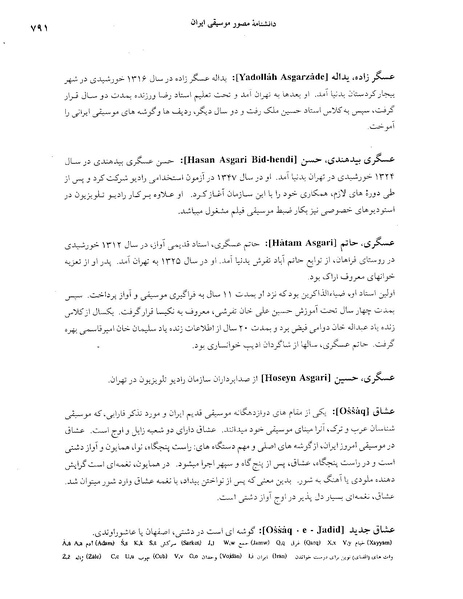 دانشنامهٔ مصور موسیقی ایران
۷۹۱
عسگر زاده، یداله [Yadollâh Asgarzâde]: یداله عسگر زاده در سال ۱۳۱۶ خورشیدی در شهر
بیجار کردستان بدنیا آمد. او بعدها به تهران آمد و تحت تعلیم استاد رضا ورزنده بمدت دو سال قرار
گرفت، سپس به کلاس استاد حسین ملک رفت و دو سال دیگر، ردیف ها وگوشه های موسیقی ایرانی را
آموخت.
عسگری بیدهندی، حسن [Hasan Asgari Bid-hendi]: حسن عسگری بیدهندی در سال
۱۳۲۴ خورشیدی در تهران بدنیا آمد. او در سال ۱۳۴۷ در آزمون استخدامی رادیو شرکت کرد و پس از
طی دورهٔ های لازم، همکاری خود را با این سازمان آغاز کرد. او علاوه بر کار رادیو تلویزیون در
استودیوهای خصوصی نیز بکار ضبط موسیقی فیلم مشغول میباشد.
عسگری، حاتم [Hâtam Asgari]: حاتم عسگری، استاد قدیمی آواز، در سال ۱۳۱۲ خورشیدی
در روستای فراهان، از توابع حاتم آباد تفرش بدنیا آمد. او در سال ۱۳۲۵ به تهران آمد. پدر او از تعزیه
خوانهای معروف اراک بود.
اولین استاد او، ضیاءالذاکرین بود که نزد او بمدت ۱۱ سال به فراگیری موسیقی و آواز پرداخت. سپس
بمدت چهار سال تحت آموزش حسین علی خان تفرشی، معروف به نکیسا قرار گرفت. یکسال از کلاس
زنده یاد عبداله خان دوامی فیض برد و بمدت ۲۰ سال از اطلاعات زنده یاد سلیمان خان امیرقاسمی بهره
گرفت. حاتم عسگری، سالها از شاگردان ادیب خوانساری بود.
عسگری، حسین [Hoseyn Asgari] از صدابرداران سازمان رادیو تلویزیون در تهران.
عشاق [Oššâq]: یکی از مقام های دوازدهگانه موسیقی قدیم ایران و مورد تذکر فارابی، که موسیقی
شناسان عرب و ترک، آنرا مبنای موسیقی خود میدانند. عشاق دارای دو شعبه زابل و اوج است. عشاق
در موسیقی امروز ایران، از گوشه های اصلی و مهم دستگاه های: راست پنجگاه، نوا، همایون و آواز دشتی
است و در راست پنجگاه، عشاق، پس از پنج گاه و سپهر اجرا میشود. در همایون، نغمه‌ای است گرایش
دهنده ملودی یا آهنگ به شور. بدین معنی که پس از نواختن بیداد، با نغمه عشاق وارد شور میتوان شد.
عشاق، نغمه‌ای بسیار دل پذیر در اوج آواز دشتی است.
عشاق جدید [Oššâq - e - Jadid]: گوشه ای است در دشتی، اصفهان یا عاشوراوندی.